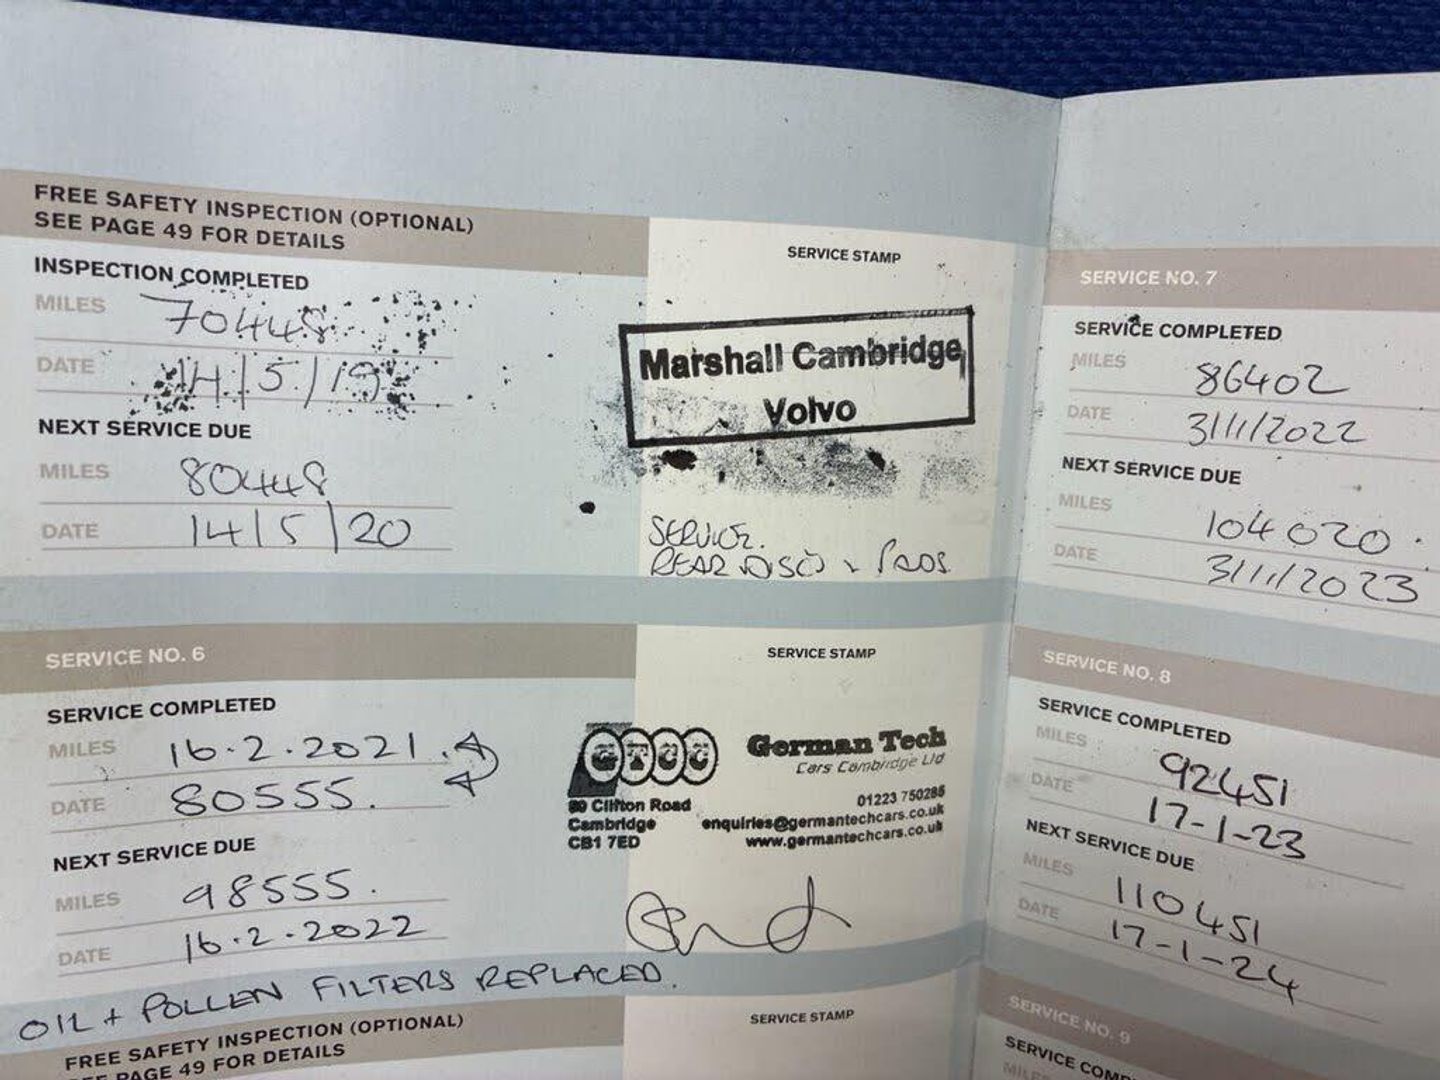 FREE SAFETY INSPECTION (OPTIONAL)
SEE PAGE 49 FOR DETAILS
INSPECTION COMPLETED
MILES 70448
DATE 14/5/19
NEXT SERVICE DUE
MILES 80448
DATE 14/5/20
SERVICE STAMP
Marshall Cambridge
Volvo
SERVICE.
REAR DISCS + PADS
SERVICE NO. 6
SERVICE COMPLETED
MILES 16.2.2021.
DATE 80555.
NEXT SERVICE DUE
MILES 98555.
DATE 16.2.2022
OIL + POLLEN FILTERS REPLACED.
SERVICE STAMP
GTCC
German Tech
Cars Cambridge Ltd
89 Clifton Road
Cambridge
CB1 7ED
01223 750285
enquiries@germantechcars.co.uk
www.germantechcars.co.uk
FREE SAFETY INSPECTION (OPTIONAL)
SEE PAGE 49 FOR DETAILS
SERVICE STAMP
SERVICE NO. 7
SERVICE COMPLETED
MILES 86402
DATE 31/1/2022
NEXT SERVICE DUE
MILES 104020.
DATE 31/1/2023
SERVICE NO. 8
SERVICE COMPLETED
MILES 92451
DATE 17-1-23
NEXT SERVICE DUE
MILES 110451
DATE 17-1-24
SERVICE NO. 9
SERVICE
MILES